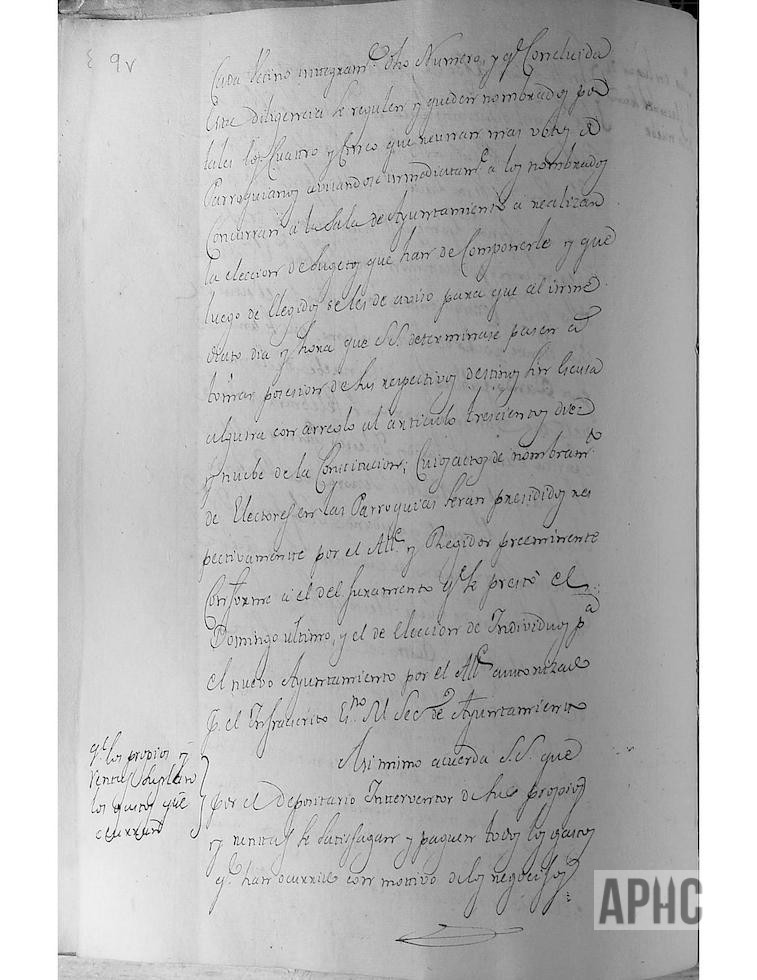 9v
Cada Vecino integram.te dho Numero, y q.e Concluida
Esta diligencia se regulen y queden nombrados por
tales los Cuatro y Cinco que reunan mas votos de
Parroquianos avisandose inmediatam.te a los nombrados
Concurran à la Sala de Ayuntamiento à realizar
la eleccion de Sugetos que han de Componerle y que
luego de Elegidos se les de aviso para que al inme-
diato dia y hora que S.S. determinase pasen à
tomar posesion de sus respectivos destinos sin Escusa
alguna con arreglo al articulo trescientos diez
y nuebe de la Constitucion; Cuios actos de nombram.to
de Electores en las Parroquias seran presididos res
pectivamente por el Alc.e y Regidor preeminente
Conforme à el del Juramento q.e se prestò el
Domingo ultimo, y el de Eleccion de Individuos p.a
el nuevo Ayuntamiento por el Alc.e autorizado
p. el Infrascrito Es.no Secr.o de Ayuntamiento
Asimismo acuerda S.S. que
q.e los propios y
rentas suplan
los gastos que
ocurran
por el Depositario Interventor de sus propios
y rentas se satisfagan y paguen todos los gastos
q.e han ocurrido con motivo de los regocijos
APHC